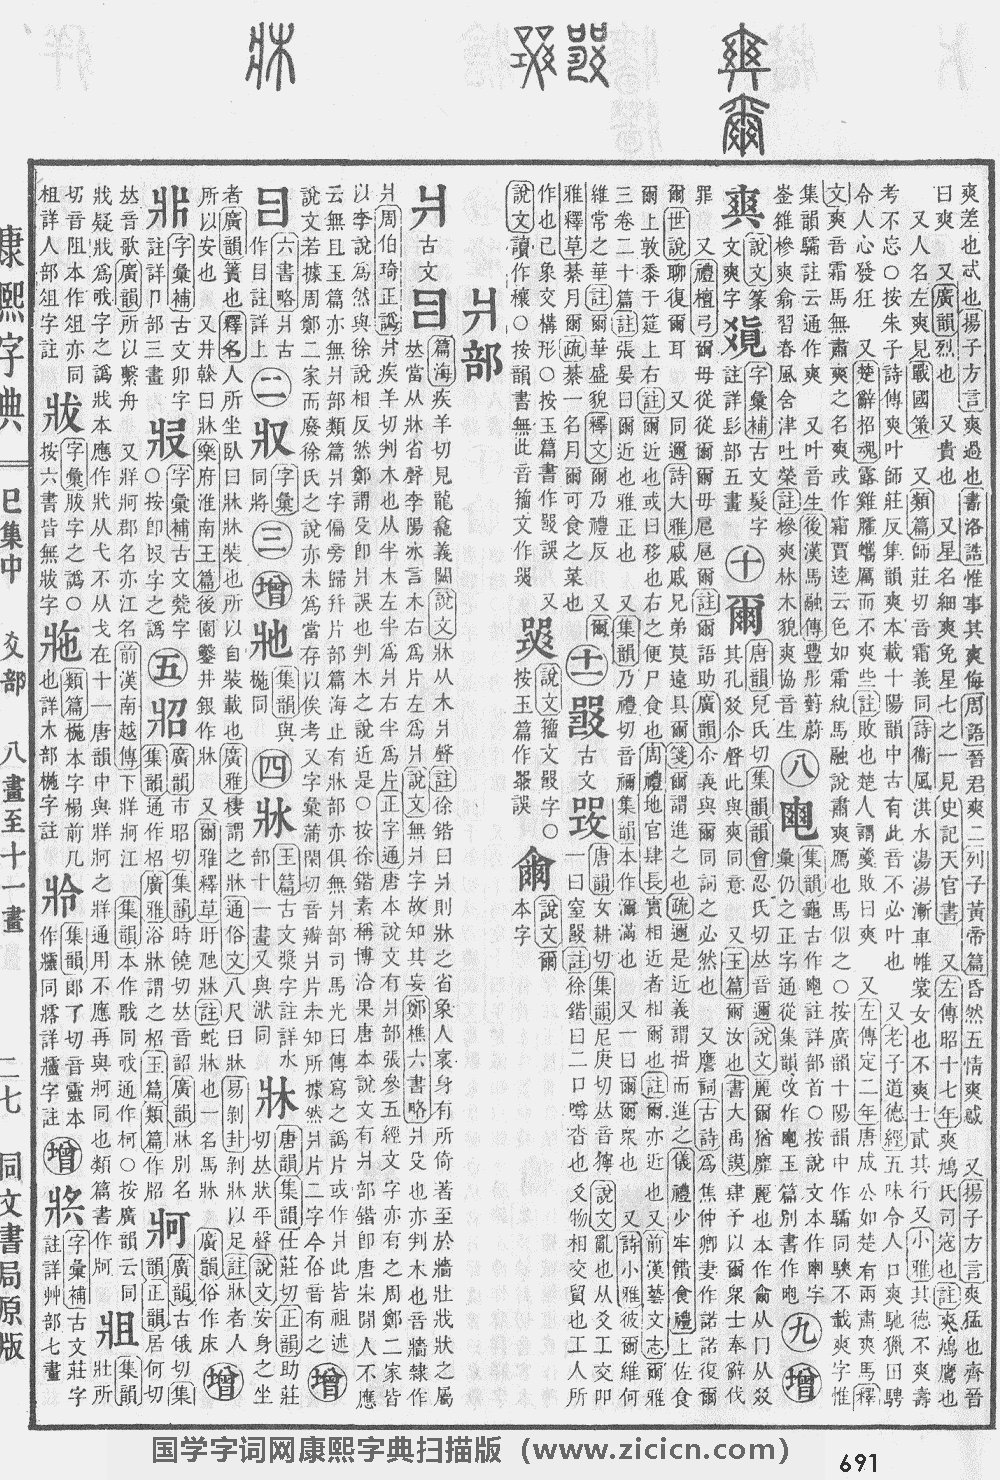 爽差也忒也揚子方言爽過也書洛誥惟事其爽侮周語晉君爽二列子黃帝篇昏然五情爽惑 又揚子方言爽猛也齊晉
曰爽 又廣韻烈也 又貴也 又星名細爽免星七之一見史記天官書 又左傳昭十七年爽鳩氏司寇也註爽鳩鷹也
又人名左爽見戰國策 又類篇師莊切音霜義同詩衞風淇水湯湯漸車帷裳女也不爽士貳其行又小雅其德不爽壽
考不忘○按朱子詩傳爽叶師莊反集韻爽本載十陽韻中古有此音不必叶也 又老子道德經五味令人口爽馳獵田騁
令人心發狂 又楚辭招魂露雞臛蠵厲而不爽些註敗也楚人謂羹敗曰爽 又左傳定二年唐成公如楚有兩肅爽馬釋
文爽音霜馬無肅爽之名爽或作霜賈逵云色如霜紈馬融說肅爽鴈也馬似之○按廣韻十陽韻中作驦同騻不載爽字惟
集韻驦註云通作爽 又叶音生後漢馬融傳豐彤薱蔚
崟嶉槮爽翕習春風含津吐榮註槮爽林木貌爽協音生
八
集韻龜古作註詳部首○按說文本作字
彙仍之正字通從集韻改作玉篇別書作
九 增
說文篆文爽字
字彙補古文髮字註詳髟部五畫
十 爾
唐韻兒氏切集韻韻會忍氏切𠀤音邇說文麗爾猶靡麗也本作从冂从㸚
其孔㸚尒聲此與爽同意 又玉篇爾汝也書大禹謨肆予以爾衆士奉辭伐
罪 又禮檀弓爾毋從從爾爾毋扈扈爾註爾語助廣韻尒義與爾同詞之必然也 又譍詞古詩爲焦仲卿妻作諾諾復爾
爾世說聊復爾耳 又同邇詩大雅戚戚兄弟莫遠具爾箋爾謂進之也疏邇是近義謂揖而進之儀禮少牢饋食禮上佐食
爾上敦黍于筵上右註爾近也或曰移也右之便尸食也周禮地官肆長實相近者相爾也註爾亦近也 又前漢藝文志爾雅
三卷二十篇註張晏曰爾近也雅正也 又集韻乃禮切音禰集韻本作瀰滿也 又一曰爾爾衆也 又詩小雅彼爾維何
維常之華註爾華盛貌釋文爾乃禮反 又爾
雅釋草綦月爾疏綦一名月爾可食之菜也
十一
古文
唐韻女耕切集韻尼庚切𠀤音獰說文亂也从爻工交吅
一曰窒註徐鍇曰二口噂沓也爻物相交質也工人所
作也已象交構形○按玉篇書作誤 又
說文讀作穰○按韻書無此音籀文作
說文籀文字○按玉篇作誤
說文爾本字
爿部
爿
古文
篇海疾羊切見龍龕義闕說文牀从木爿聲註徐鍇曰爿則牀之省象人衺身有所倚著至於牆壯戕狀之屬
𠀤當从牀省聲李陽冰言木右爲片左爲爿說文無爿字故知其妄鄭樵六書略爿殳也亦判木也音牆隸作
爿周伯琦正譌爿疾羊切判木也从半木左半爲爿右半爲片左正字通唐本說文有爿部張參五經文字亦有之周鄭二家皆
以李說爲然與徐說相反然鄭謂殳卽爿誤也判木之說近是○按徐鍇素稱博洽果唐本說文有爿部鍇卽唐宋閒人不應
云無且玉篇亦無爿部類篇爿字偏旁歸片部篇海止有牀部亦俱無爿部司馬光曰傳寫之譌片或作爿此皆祖述
說文若據周鄭二家而廢徐氏之說亦未爲當存以俟考又字彙蒲閑切音瓣爿片未知所據然爿片二字今俗音有之
增
六書略爿古作註詳上
二
字彙同將
三 增
集韻與椸同
四 牀
玉篇古文漿字註詳水部十一畫又與牀同
牀
唐韻集韻仕莊切正韻助莊切𠀤狀平聲說文安身之坐
者廣韻簀也釋名人所坐臥曰牀牀裝也所以自裝載也廣雅棲謂之牀通俗文八尺曰牀易剝卦剝牀以足註牀者人
所以安也 又井榦曰牀樂府淮南王篇後園鑿井銀作牀 又爾雅釋草盱虺牀註蛇牀也一名馬牀 廣韻俗作床
增
字彙補古文卯字註詳卩部三畫
字彙補古文㲋字○按卽字之譌
五 牊
廣韻市昭切集韻時饒切𠀤音韶廣韻牀別名
集韻通作柖廣雅浴牀謂之柖玉篇類篇作
牁
廣韻古俄切集韻正韻居何切
𠀤音歌廣韻所以繫舟 又牂牁郡名亦江名前漢南越傳下牂牁江 集韻本作歌同戨通作柯○按廣韻云同
戕疑戕爲戨字之譌戕本應作牂从弋不从戈在十一唐韻中與牂牁之牂通用不應再與牁同也類篇書作
牀
集韻壯所
切音阻本作俎亦同
祖詳人部俎字註
字彙牀字之譌○
按六書皆無字
類篇椸本字榻前几
也詳木部椸字註
集韻郞丁切音靈本
作同詳字註
增
字彙補古文莊字
註詳艸部七畫
康熙字典 巳集中 爻部 八畫至十一畫 二七 同文書局原版
国学字词网康熙字典扫描版（www.zicicn.com）
691